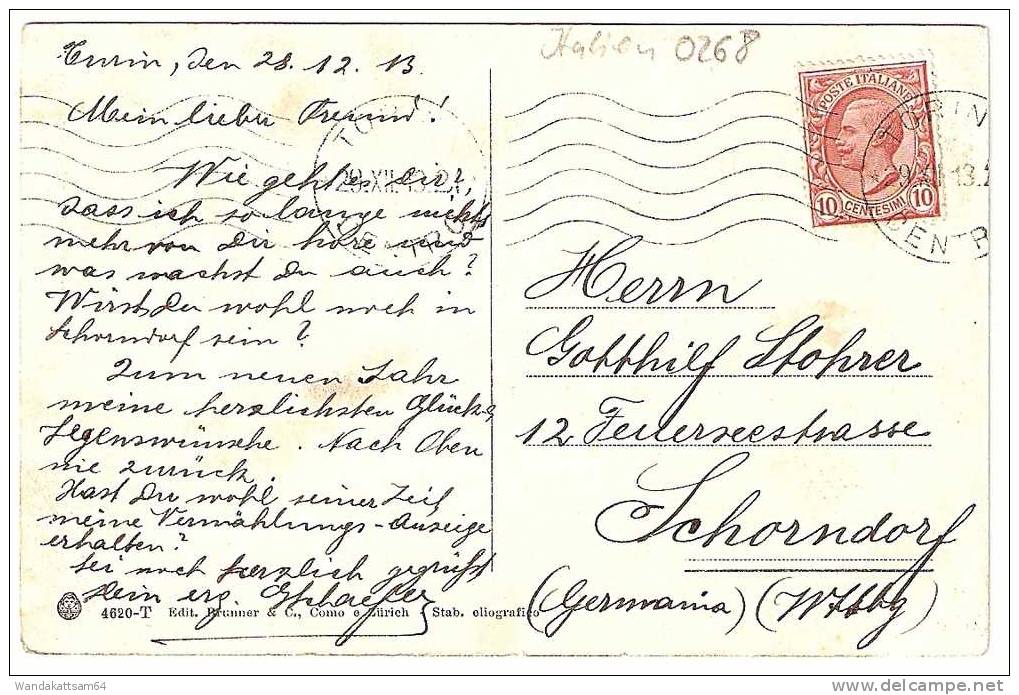 Turin, den 28. 12. 13.
Mein lieber Freund!
Wie geht es dir?,
dass ich so lange nichts
mehr von Dir höre und
was machst Du auch?
Wirst Du wohl noch in
Schorndorf sein?
Zum neuen Jahr
meine herzlichsten Glück- &
Segenswünsche. Nach Oben
nie zurück.
Hast Du wohl seiner Zeit
meine Vermählungs-Anzeige
erhalten?
Sei noch herzlich gegrüßt
Dein erg.
4620-T Edit. Brunner & C., Como e Zürich - Stab. eliografico
Italien 0268
POSTE ITALIANE
10 CENTESIMI 10
Herrn
Gotthilf Stohrer
12 Feuerseestrasse
Schorndorf
(Germania) (Wttbg)
WandaKattsam64
delcampe.net